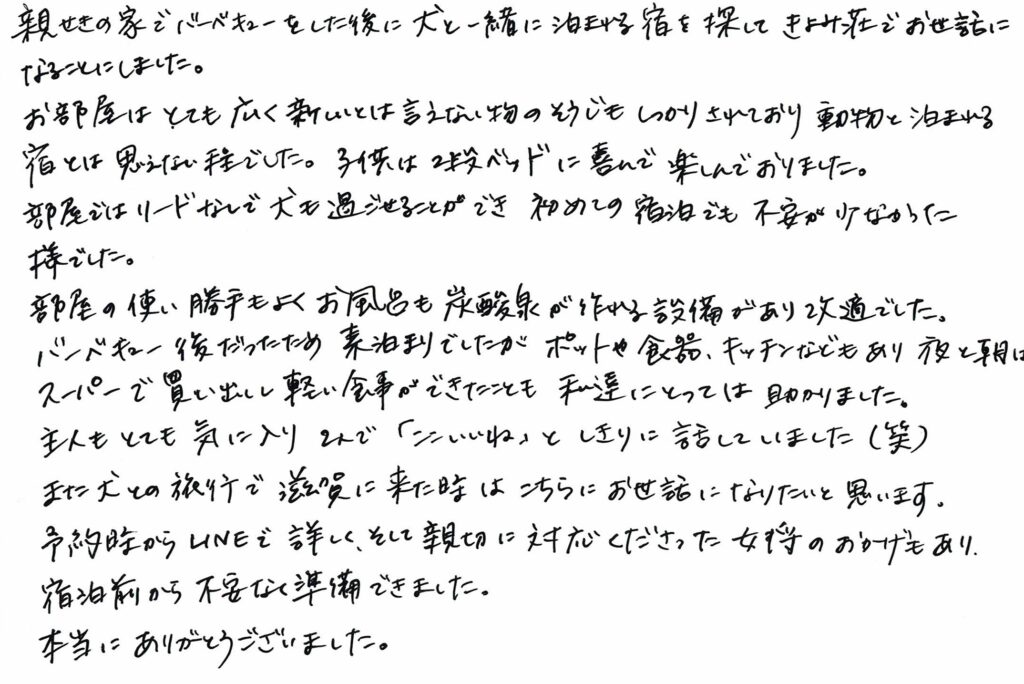 親せきの家でバーベキューをした後に犬と一緒に泊まれる宿を探してきよみ荘でお世話に
なることにしました。
お部屋はとても広く新しいとは言えない物のそうじもしっかりされており動物と泊まれる
宿とは思えない程でした。子供は2段ベッドに喜んで楽しんでおりました。
部屋ではリードなしで犬も過ごせることができ初めての宿泊でも不安が少なかった
様でした。
部屋の使い勝手もよくお風呂も炭酸泉が作れる設備があり快適でした。
バーベキュー後だったため素泊まりでしたがポットや食器、キッチンなどもあり夜と朝は
スーパーで買い出しし軽い食事ができたことも私達にとっては助かりました。
主人もとても気に入り2人で「ここいいね」としきりに話していました(笑)
また犬との旅行で滋賀に来た時はこちらにお世話になりたいと思います。
予約時からLINEで詳しく、そして親切に対応くださった女将のおかげもあり、
宿泊前から不安なく準備できました。
本当にありがとうございました。